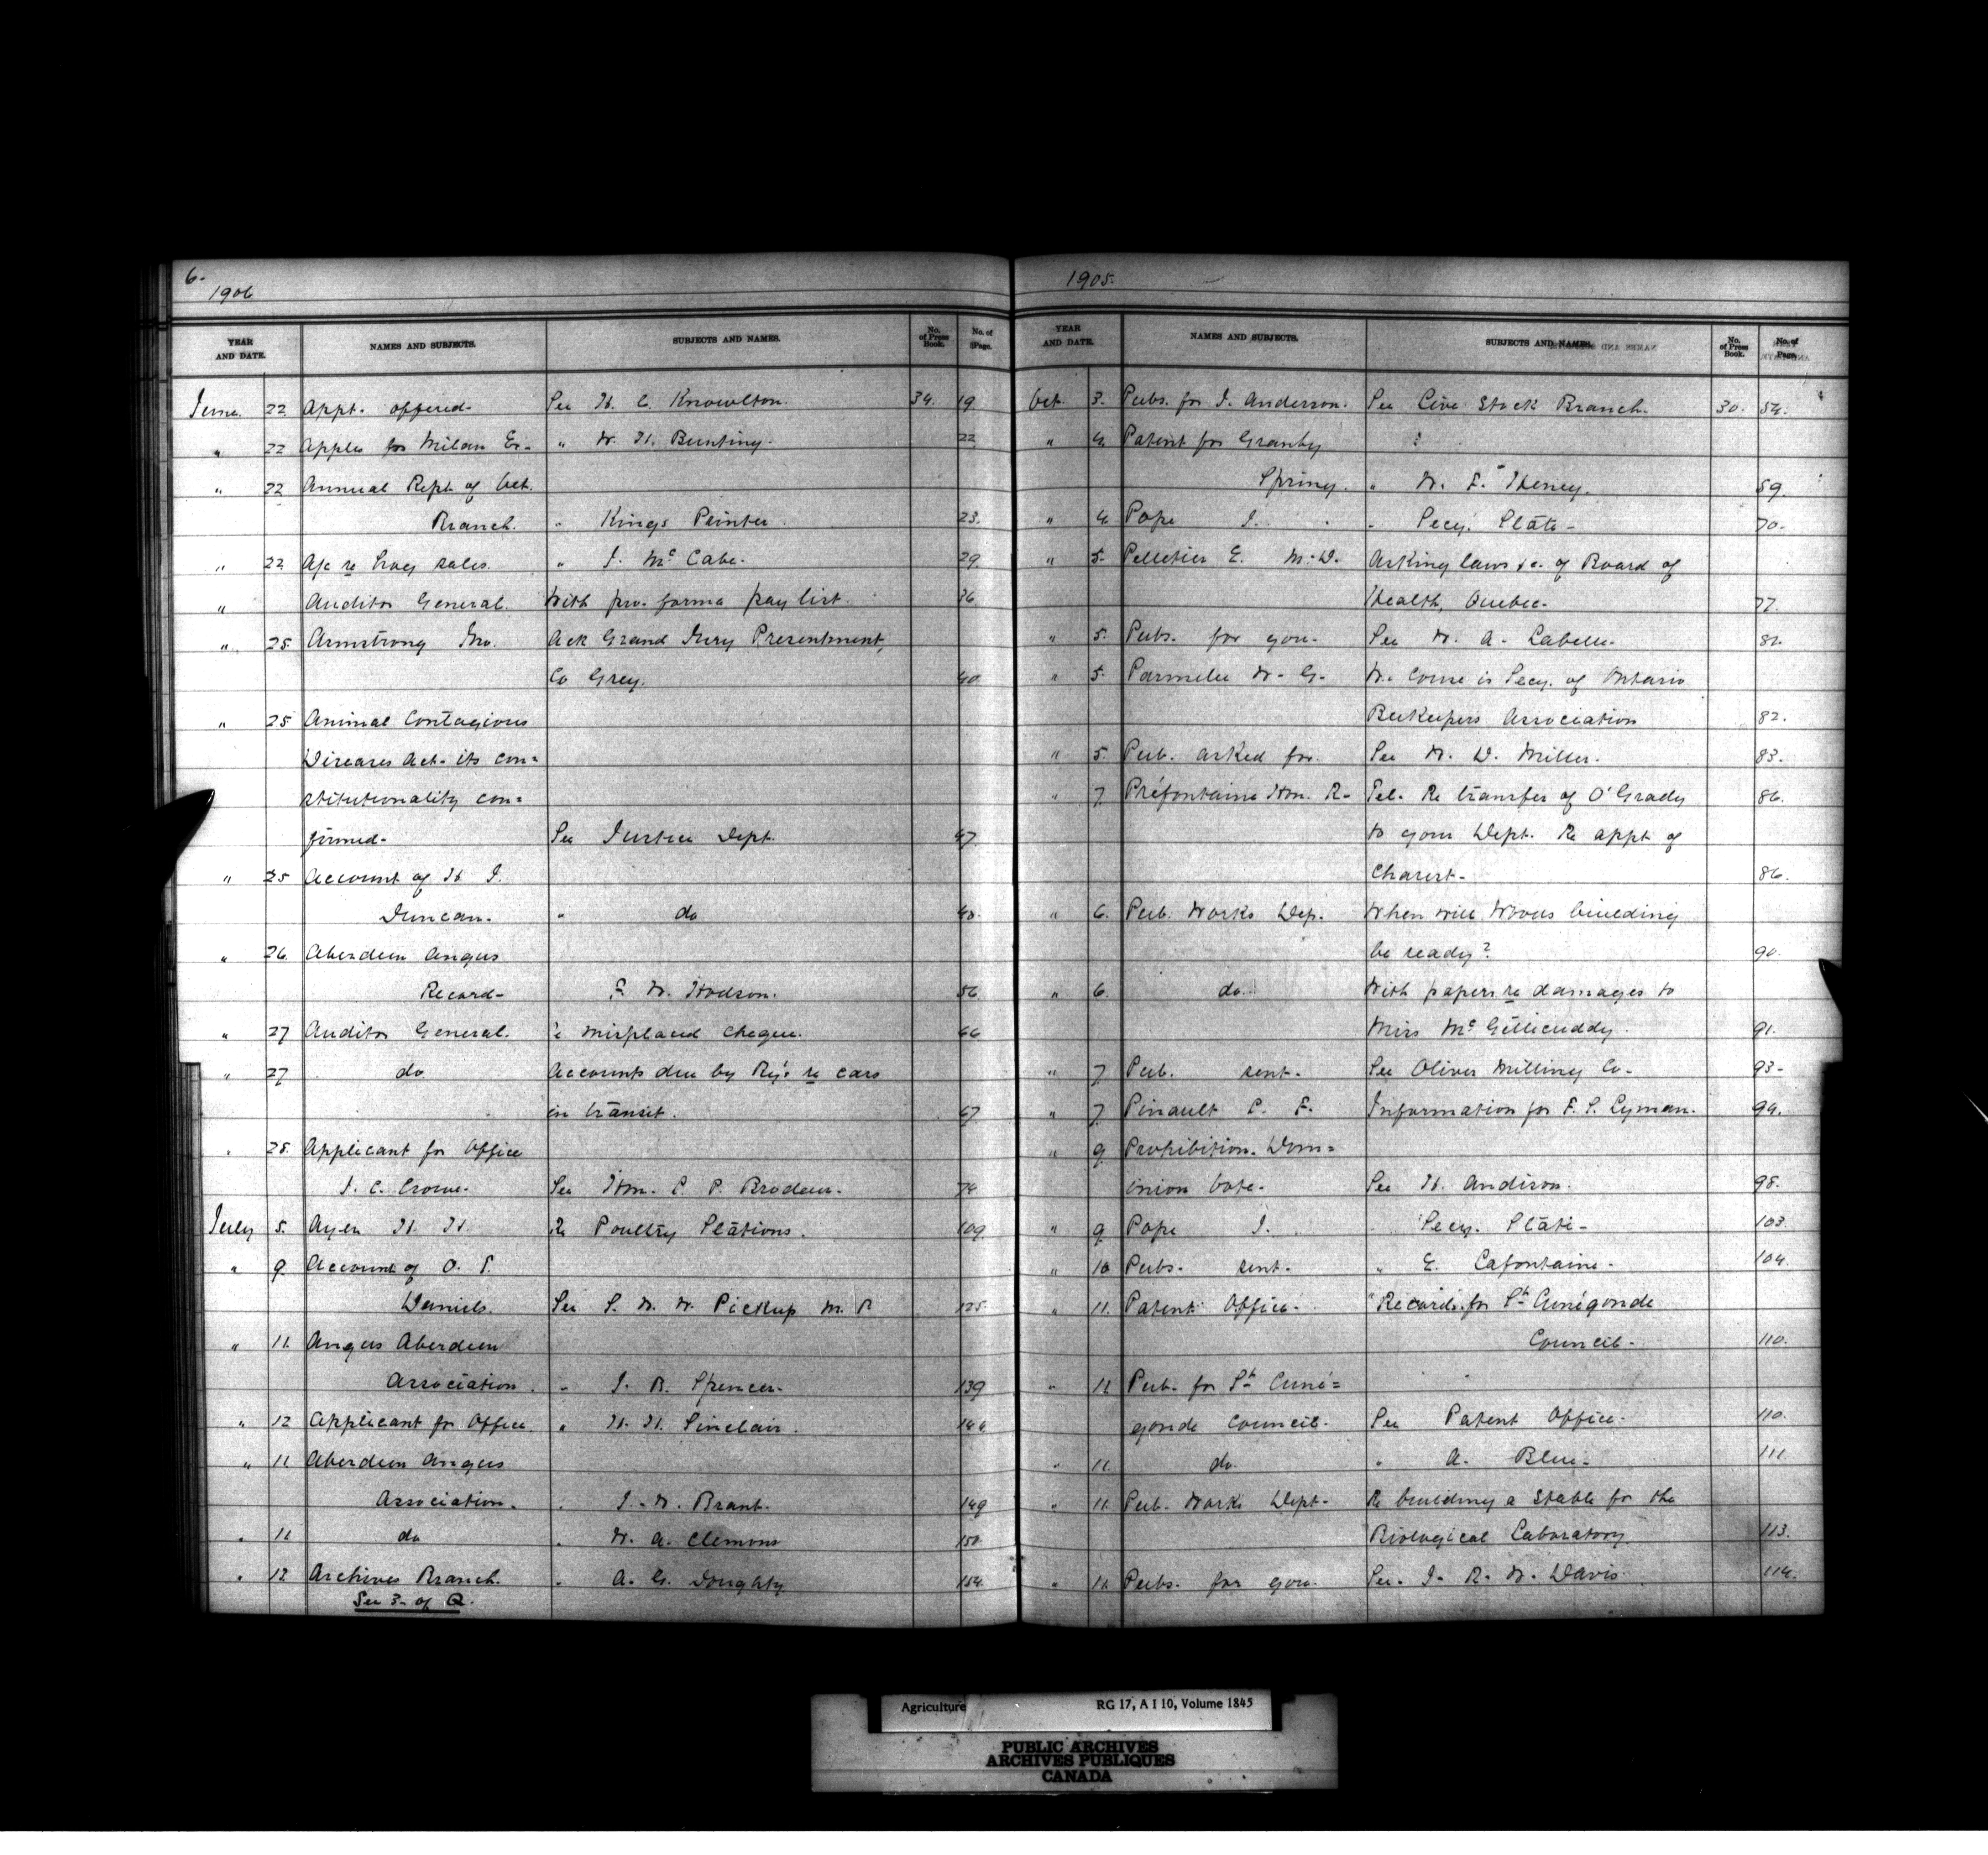 6-
1906
YEAR AND DATE. NAMES AND SUBJECTS. SUBJECTS AND NAMES. No. of Press Book. No. of Page.
June 22 Appt. offered- See H. C. Knowlton. 34. 19
" 22 Apples for Milan Ex- " W. H. Bunting. 22
" 22 Annual Rept. of Vet.
Branch. " Kings Printer 23.
" 22 A/c re hog sales. " J. McCabe. 29
" Auditor General. With pro-forma pay list. 36
" 25. Armstrong Jno. Ack Grand Jury Presentment,
Co Grey. 40
" 25 Animal Contagious
Diseases Act- its con=
stitutionality con=
firmed- See Justice Dept. 47
" 25 Account of H. J.
Duncan. " do 48.
" 26. Aberdeen Angus
Record- F. W. Hodson. 56
" 27 Auditor General. misplaced cheque. 66
" 27 do Accounts due by Ry's re cars
in transit. 67
" 28. Applicant for Office
J. C. Crowe. See Hon. L. P. Brodeur. 74
July 5. Ayer H. H. Re Poultry Stations. 109
" 9. Account of O. P.
Daniels. See S. W. W. Pickup M. P 125.
" 11. Angus Aberdeen
Association. " J. B. Spencer- 139
" 12 Applicant for Office. " H. H. Sinclair. 146
" 11. Aberdeen Angus
Association. " J. W. Brant. 149
" 11 do " W. A. Clemons 150
" 12 Archives Branch. " A. G. Doughty 154.
See 3- of Q.
1905.
YEAR AND DATE. NAMES AND SUBJECTS. SUBJECTS AND NAMES. No. of Press Book. No. of Page.
Oct. 3. Pubs. for J. Anderson. See Live Stock Branch. 30. 54.
" 4. Patent for Granby
Spring. " W. F. 59.
" 4. Pope J. " Secy. State- 70-
" 5- Pelletier E. M.D. Asking laws &c. of Board of
Health, Quebec- 77.
" 5. Pubs. for you- See W. A. Labelle- 81.
" 5. Parmelee W. G- W. Couse is Secy. of Ontario
Beekeepers Association 82.
" 5. Pub. asked for. See W. D. Miller. 83.
" 7. Préfontaine Hon. R- Tel. Re transfer of O'Grady 86.
to your Dept. Re appt of
Charest- 86.
" 6. Pub. Works Dep. When will Woods building
be ready? 90.
" 6. do. With papers re damages to
Miss McGillicuddy. 91.
" 7. Pub. sent. See Oliver Milling Co- 93-
" 7. Pinault L. F. Information for F. S. Lyman. 94.
" 9 Prohibition. Dom=
inion vote- See H. Andison. 98.
" 9 Pope J. Secy. State- 103.
" 10 Pubs- sent- " E. Lafontaine- 104.
" 11. Patent Office- Records for St Cunégonde
Council- 110.
" 11 Pub. for St Cuné=
gonde Council- See Patent Office- 110.
" 11. do. " A. Blue- 111.
" 11. Pub. Works Dept- Re building a stable for the
Biological Laboratory 113.
" 11. Pubs. for you- See J. R. W. Davis. 114.
Agriculture RG 17, A I 10, Volume 1845
PUBLIC ARCHIVES
ARCHIVES PUBLIQUES
CANADA